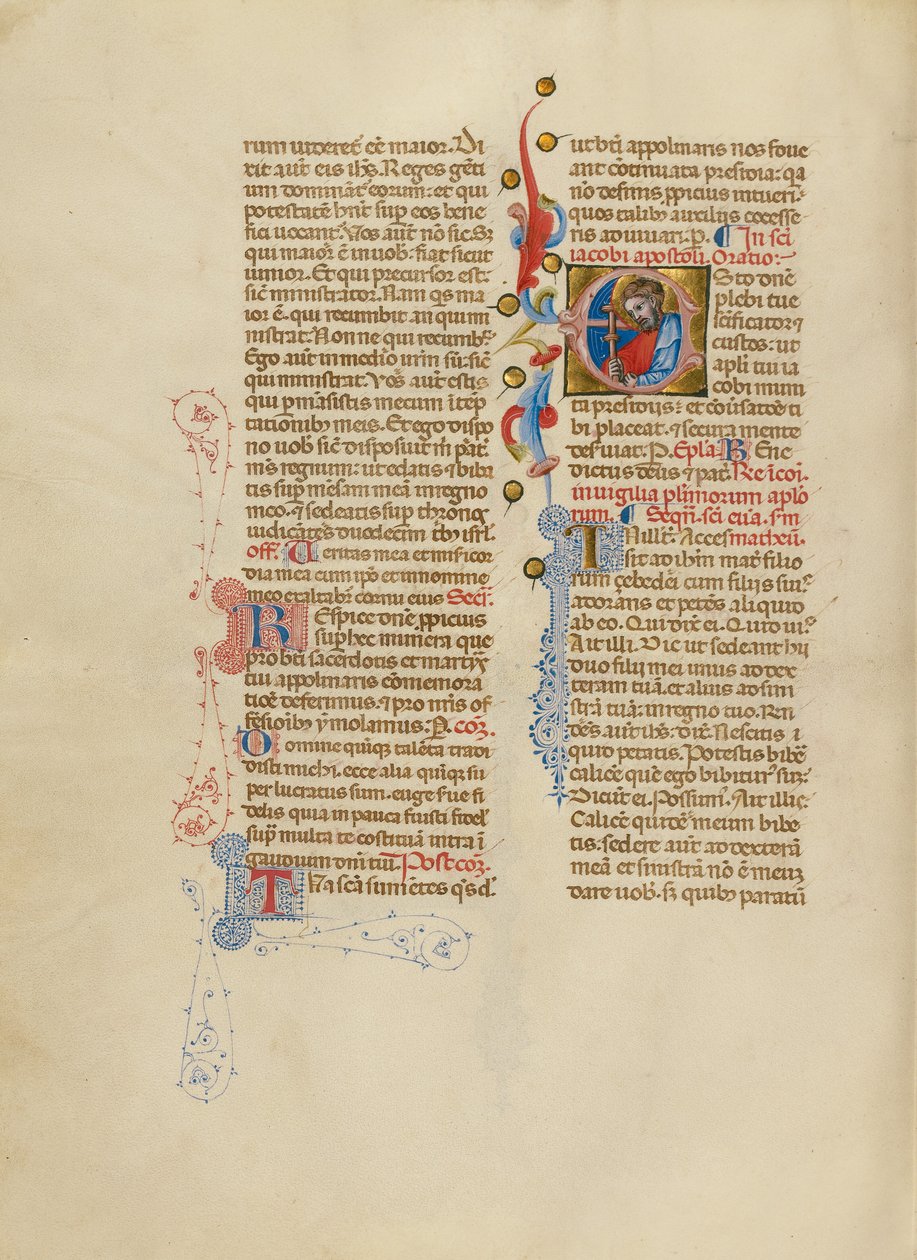 rum uideret̃ eẽ maior. Di
xit aut̃ eis ih̃s. Reges gẽti
um dominãt̃ eorum: et qui
potestatẽ hñt sup̃ eos bene
fici uocant̃. Vos aut̃ nõ sic. Sꝫ
qui maior ẽ in uob̃: fiat sicut
iunior. Et qui precursor est:
sic̃ ministrator. Nam q̃s ma
ior ẽ. qui recumbit an qui mi
nistrat. Nonne qui recumbit̃
Ego aut̃ in medio ur̃m sũ: sic̃
qui ministrat. Vos aut̃ estis
qui p̃mãsistis mecum ĩ tẽp
tationib̃ meis. Et ego dispo
no uob̃ sic̃ disposuit m̃ pat̃.
m̃s regnum: ut edatis ⁊ biba
tis sup̃ mẽsam meã in regno
meo. ⁊ sedeatis sup̃ thronos
iudicãtes duodecim tb̃ isr̃l.
Off̃. Veritas mea et mĩsĩcor
dia mea cum ip̃o et in nomine
meo exaltabit̃ cornu eius Sec̃.
REspice dñe p̃picius
sup̃ hec munera que
pro bt̃i sacerdotis et martyr̃
tui appolinaris cõmemora
tiõe deferimus. ⁊ pro nr̃is of
fẽsioĩb̃ ymolamus. P. Cõꝫ.
Domine quinq̃ talẽta tradi
disti michi. ecce alia quinq̃ su
per lucratus sum. euge s̃ue fi
delis quia in pauca fuisti fidel̃
sup̃ multa te cõstituã intra ĩ
gaudium dñi tui. Post cõꝫ.
TUa sc̃a sumẽtes q̃s d̃.
ut bt̃i appolinaris nos foue
ant cõtinuata presidia: q̃a
nõ desinis p̃picius intueri.
quos talib̃ auxiliis cõcesse
ris adiuuari. P. ¶ In sc̃i
iacobi apostoli. Oratio:
ESto dñe
plebi tue
sc̃ificator ⁊
custos: ut
apl̃i tui ia
cobi muni
ta presidiis: et cõũsatõe ti
bi placeat. ⁊ secura mente
des̃uiat. P. Epl̃a. BEne
dictus deus ⁊ pat̃. Re ĩ cõi.
in uigilia pl̃imorum aplo
rum. ¶ Seqñ. sc̃i euã. s̃m
IN illo t̃. Acces matheũ.
sit ad ih̃m mat̃ filio
rum zebedei cum filiis suis
adorãns et petẽs aliquid
ab eo. Qui dix̃ ei. Quid uis̃
Ait illi. Dic ut sedeant hii
duo filii mei unus ad dex
teram tuã. et alius ad sini
strã tuã: in regno tuo. Ren
dẽs. aut̃ ih̃s: dix̃. Nescitis q
quid petatis. Potestis bibẽ
calicẽ quẽ ego bibitur̃ sũ:
Dicũt ei. Possum̃. Ait illis:
Calicẽ quidẽ meum bibe
tis. sedere aut̃ ad dexterã
meã et sinistrã nõ ẽ meuꝫ
dare uob̃. sꝫ quib̃ paratũ